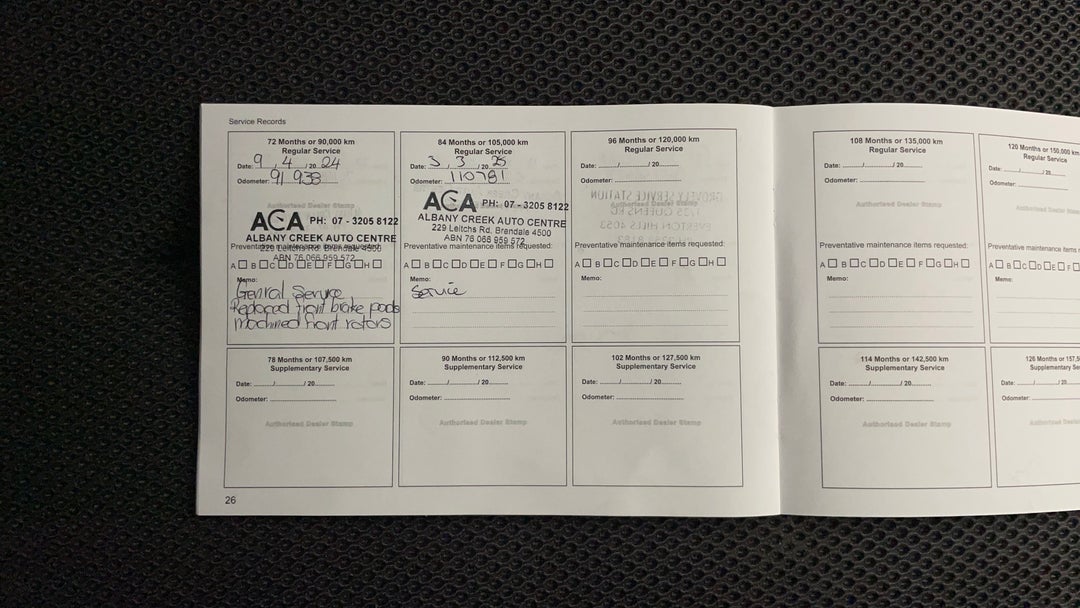 Service Records
72 Months or 90,000 km
Regular Service
Date: 9 / 4 / 20 24
Odometer: 91 938
Authorised Dealer Stamp
ACA PH: 07 - 3205 8122
ALBANY CREEK AUTO CENTRE
229 Leitchs Rd. Brendale 4500
ABN 76 066 959 572
Preventative maintenance items requested:
A B C D E F G H
Memo:
Genral Service
Replaced front brake pads
machined front rotors
84 Months or 105,000 km
Regular Service
Date: 3 / 3 / 20 25
Odometer: 110781
ACA PH: 07 - 3205 8122
ALBANY CREEK AUTO CENTRE
229 Leitchs Rd. Brendale 4500
ABN 76 066 959 572
Preventative maintenance items requested:
A B C D E F G H
Memo:
Service
96 Months or 120,000 km
Regular Service
Date: ......../......../ 20........
Odometer:
Authorised Dealer Stamp
Preventative maintenance items requested:
A B C D E F G H
Memo:
108 Months or 135,000 km
Regular Service
Date: ......../......../ 20........
Odometer:
Authorised Dealer Stamp
Preventative maintenance items requested:
A B C D E F G H
Memo:
120 Months or 150,000 km
Regular Service
Date: ......../......../ 20........
Odometer:
Authorised Dealer Stamp
Preventative maintenance items
A B C D E F
Memo:
78 Months or 107,500 km
Supplementary Service
Date: ......../......../ 20........
Odometer:
Authorised Dealer Stamp
90 Months or 112,500 km
Supplementary Service
Date: ......../......../ 20........
Odometer:
Authorised Dealer Stamp
102 Months or 127,500 km
Supplementary Service
Date: ......../......../ 20........
Odometer:
Authorised Dealer Stamp
114 Months or 142,500 km
Supplementary Service
Date: ......../......../ 20........
Odometer:
Authorised Dealer Stamp
126 Months or 157,5
Supplementary Se
Date: ......../......../ 20
Odometer:
Authorised Dea
26